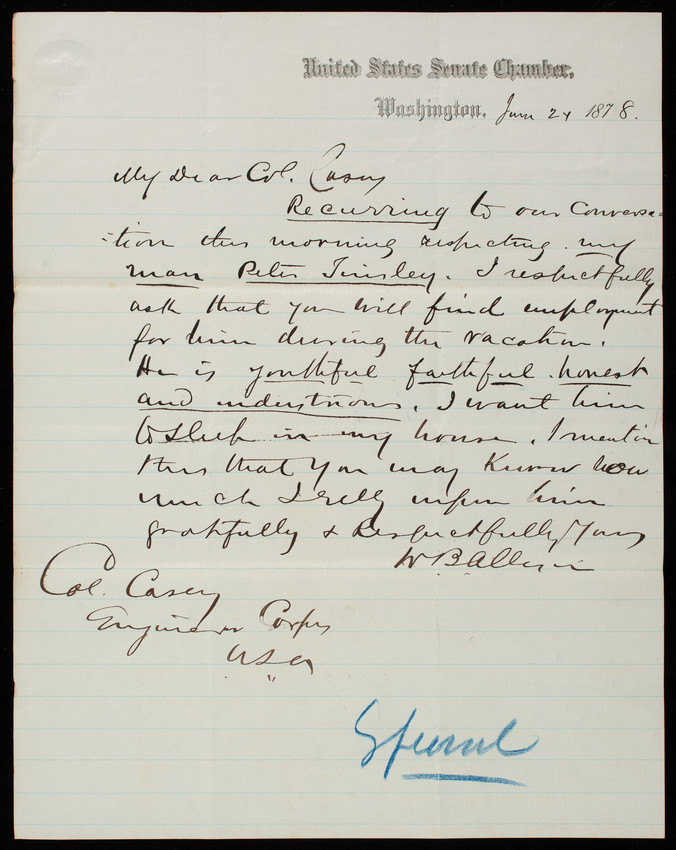 United States Senate Chamber.
Washington, June 24 1878.
My Dear Col. Casey
Recurring to our Conversa-
-tion this morning respecting my
man Peter Tinsley. I respectfully
ask that you will find employment
for him during the vacation.
He is youthful faithful honest
and industrious. I want him
to sleep in my house, I mention
this that you may know how
much I rely upon him
gratefully & Respectfully Yours
W B Allison
Col. Casey
Engineer Corps
USA